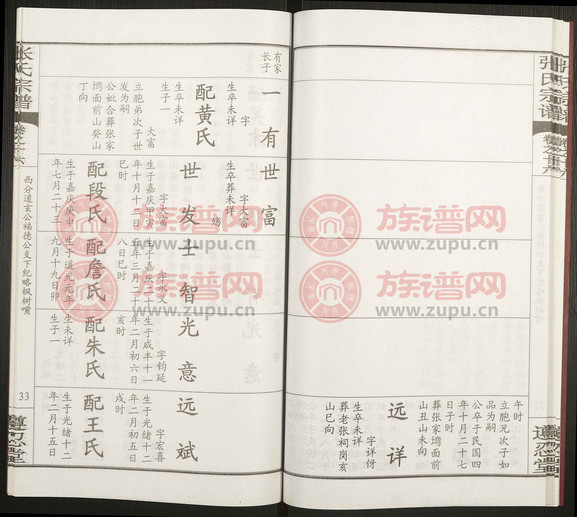 午时
立胞兄次子如
品为嗣
公卒于民国四
年十月二十七
日子时
葬张家塆面前
山丑山未向
远详
字详伢
生卒未详
葬老张祠岗亥
山巳向
张氏宗谱
遵忍堂
有家
长子
一有世富
字
生卒未详
配黄氏
生卒未详
生子一
大富
立胞弟次子世
发为嗣
公妣合葬张家
塆面前山癸山
丁向
字大富
生卒葬未详
世发士智
字大富
生于嘉庆甲寅
年十月十二日
巳时
配段氏
生于嘉庆癸申
年七月二十三
生于嘉庆二十
五年三月二十
八日巳时
配詹氏
生于道光元年
九月十九日卯
光意
字钧延
生于咸丰十一
年二月初六日
亥时
配朱氏
生未详
生子一
远斌
字宏喜
生于光绪十二
年二月初五日
戌时
配王氏
生于光绪十二
年二月十五日
西分道玄公福德公支下纪略枫树嘴
33
张氏宗谱
遵忍堂
族谱网
www.zupu.cn
族谱网
www.zupu.cn
族谱网
www.zupu.cn
族谱网
www.zupu.cn